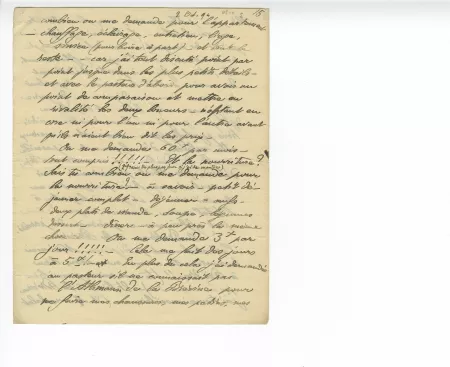 2 Oct. 90 15
combien on me demande pour l'appartement
chauffage, éclairage, entretien, linge
service (pourboire à part), et tout le
reste — car j'ai tout discuté point par
point jusque dans les plus petits détails
et avec le pasteur d'abord pour avoir un
point de comparaison et mettre en
rivalité les deux bourses — n'optant en
core ni pour l'un ni pour l'autre avant
qu'ils n'aient bien dit les prix.
On me demande 60f par mois
tout compris !!!!! Et la nourriture?
Sais tu combien on me demande pour
la nourriture? — à savoir — petit dé
jeuner complet — déjeuner — œufs
deux plats de viande, soupe, légumes
dessert — dîner — à peu près la même
chose. On me demande 3f par
jour !!!!! Cela me fait des jours
à 5f De plus de cela j'ai demandé
au pasteur s'il ne connaissait pas
de la pour
me faire mes chaussures, mes